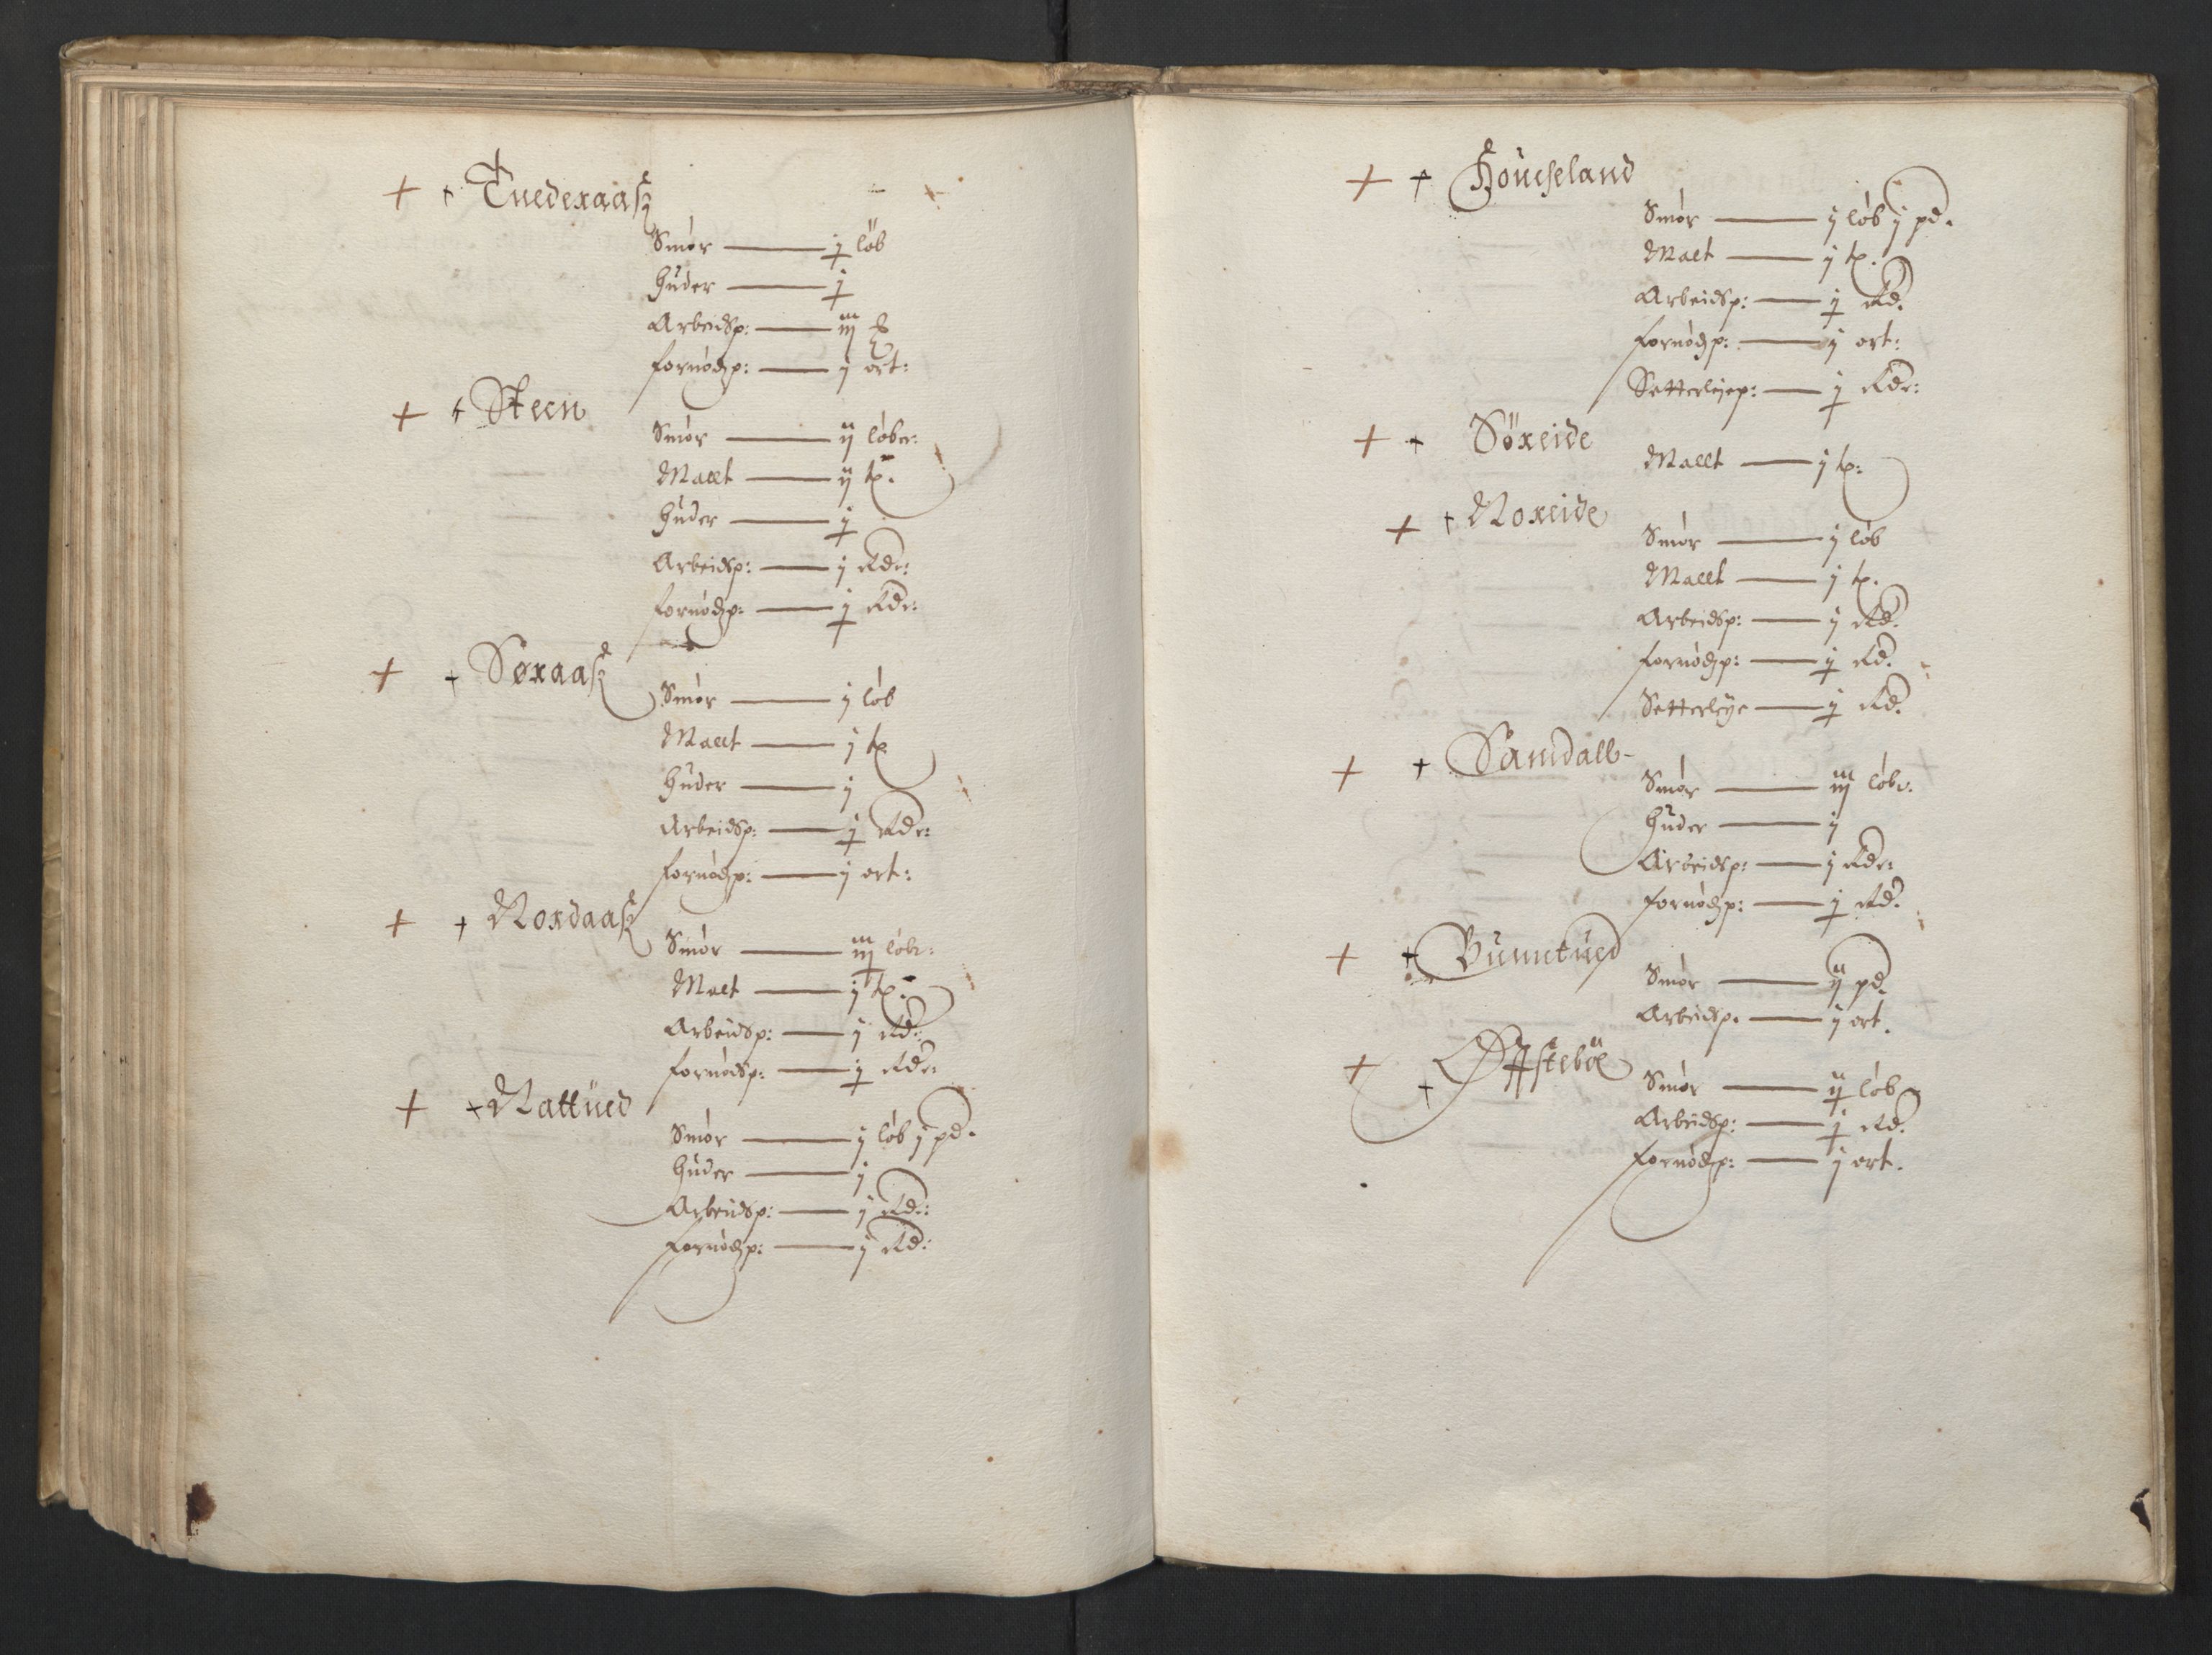 + + Tuederaas
Smør — j løb
Huder — j
Arbeidsp: — iij ß
fornødsp: — j ort:
+ + Steen
Smør — ij løber:
Mallt — ij tp.
Huder — j
Arbeidsp: — j Rdr:
fornødsp: — j Rdr:
+ + Søraas
Smør — j løb
Mallt — j tp
Huder — j
Arbeidsp: — j Rdr:
fornødsp: — j ort:
+ + Nordaas
Smør — iij løbr:
Malt — j tp.
Arbeidsp: — j Rd:
fornødsp: — j Rdr:
+ + Nattued
Smør — j løb j pd.
Huder — j
Arbeidsp: — j Rd:
fornødsp: — j Rd:
+ + Houcseland
Smør — j løb j pd.
Malt — j tp.
Arbeidsp: — j Rd.
fornødsp: — j ort:
Setterleyep: — j Rdr:
+ + Søreide
Mallt — j tp:
+ + Noreide
Smør — j løb
Mallt — j tp.
Arbeidsp: — j Rd.
fornødsp: — j Rd.
Setterleye — j Rd.
+ + Samdall
Smør — iij løbr:
Huder — j
Arbeidsp: — j Rdr:
fornødsp: — j Rd.
+ + Bunntued
Smør — ij pd.
Arbeidsp. — j ort.
+ +
Smør — ij løb
Arbeidsp: — j Rd.
fornødsp: — j ort.